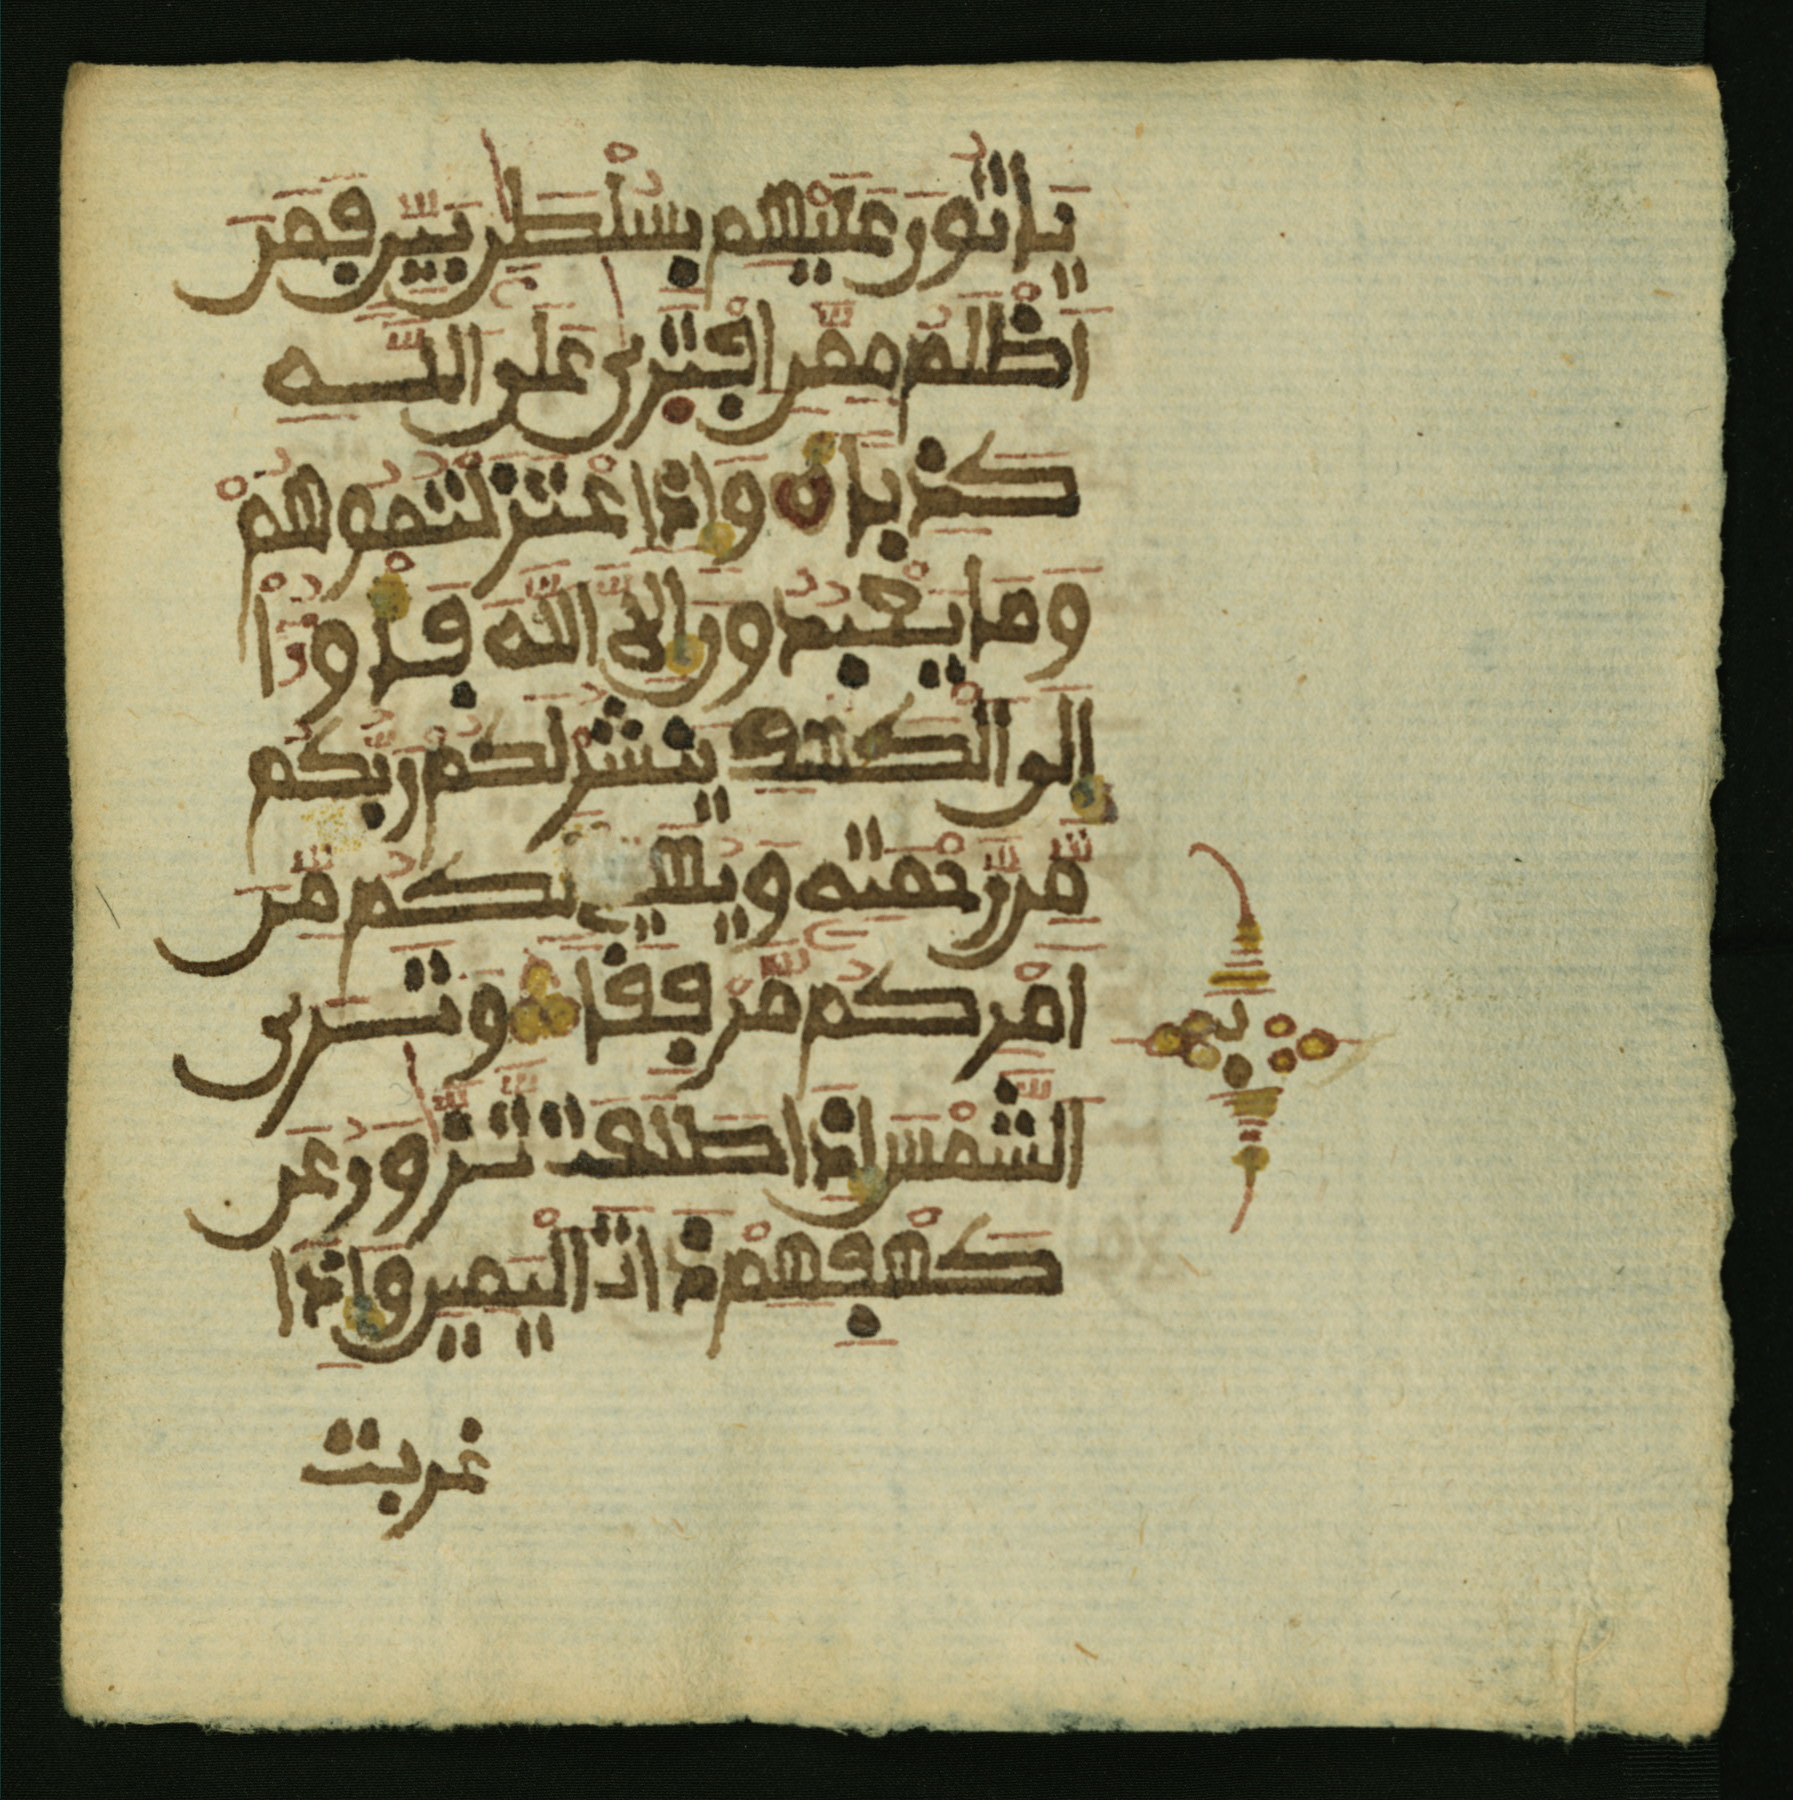 يَاتُونَ عَلَيْهِم بِسُلْطَٰنٍ بَيِّنٍ فَمَنَ
اَظْلَمُ مِمَّنِ اِفْتَرَىٰ عَلَى اللَّهِ
كَذِبًا وَإِذِ اعْتَزَلْتُمُوهُمْ
وَمَا يَعْبُدُونَ إِلَّا اللَّهَ فَأْوُۥٓا
إِلَى الْكَهْفِ يَنشُرْ لَكُمْ رَبُّكُم
مِّن رَّحْمَتِهِ وَيُهَيِّئْ لَكُم مِّنَ
اَمْرِكُم مَّرْفِقًا وَتَرَى
الشَّمْسَ إِذَا طَلَعَت تَّزَّٰوَرُ عَن
كَهْفِهِمْ ذَاتَ الْيَمِينِ وَإِذَا
غربت